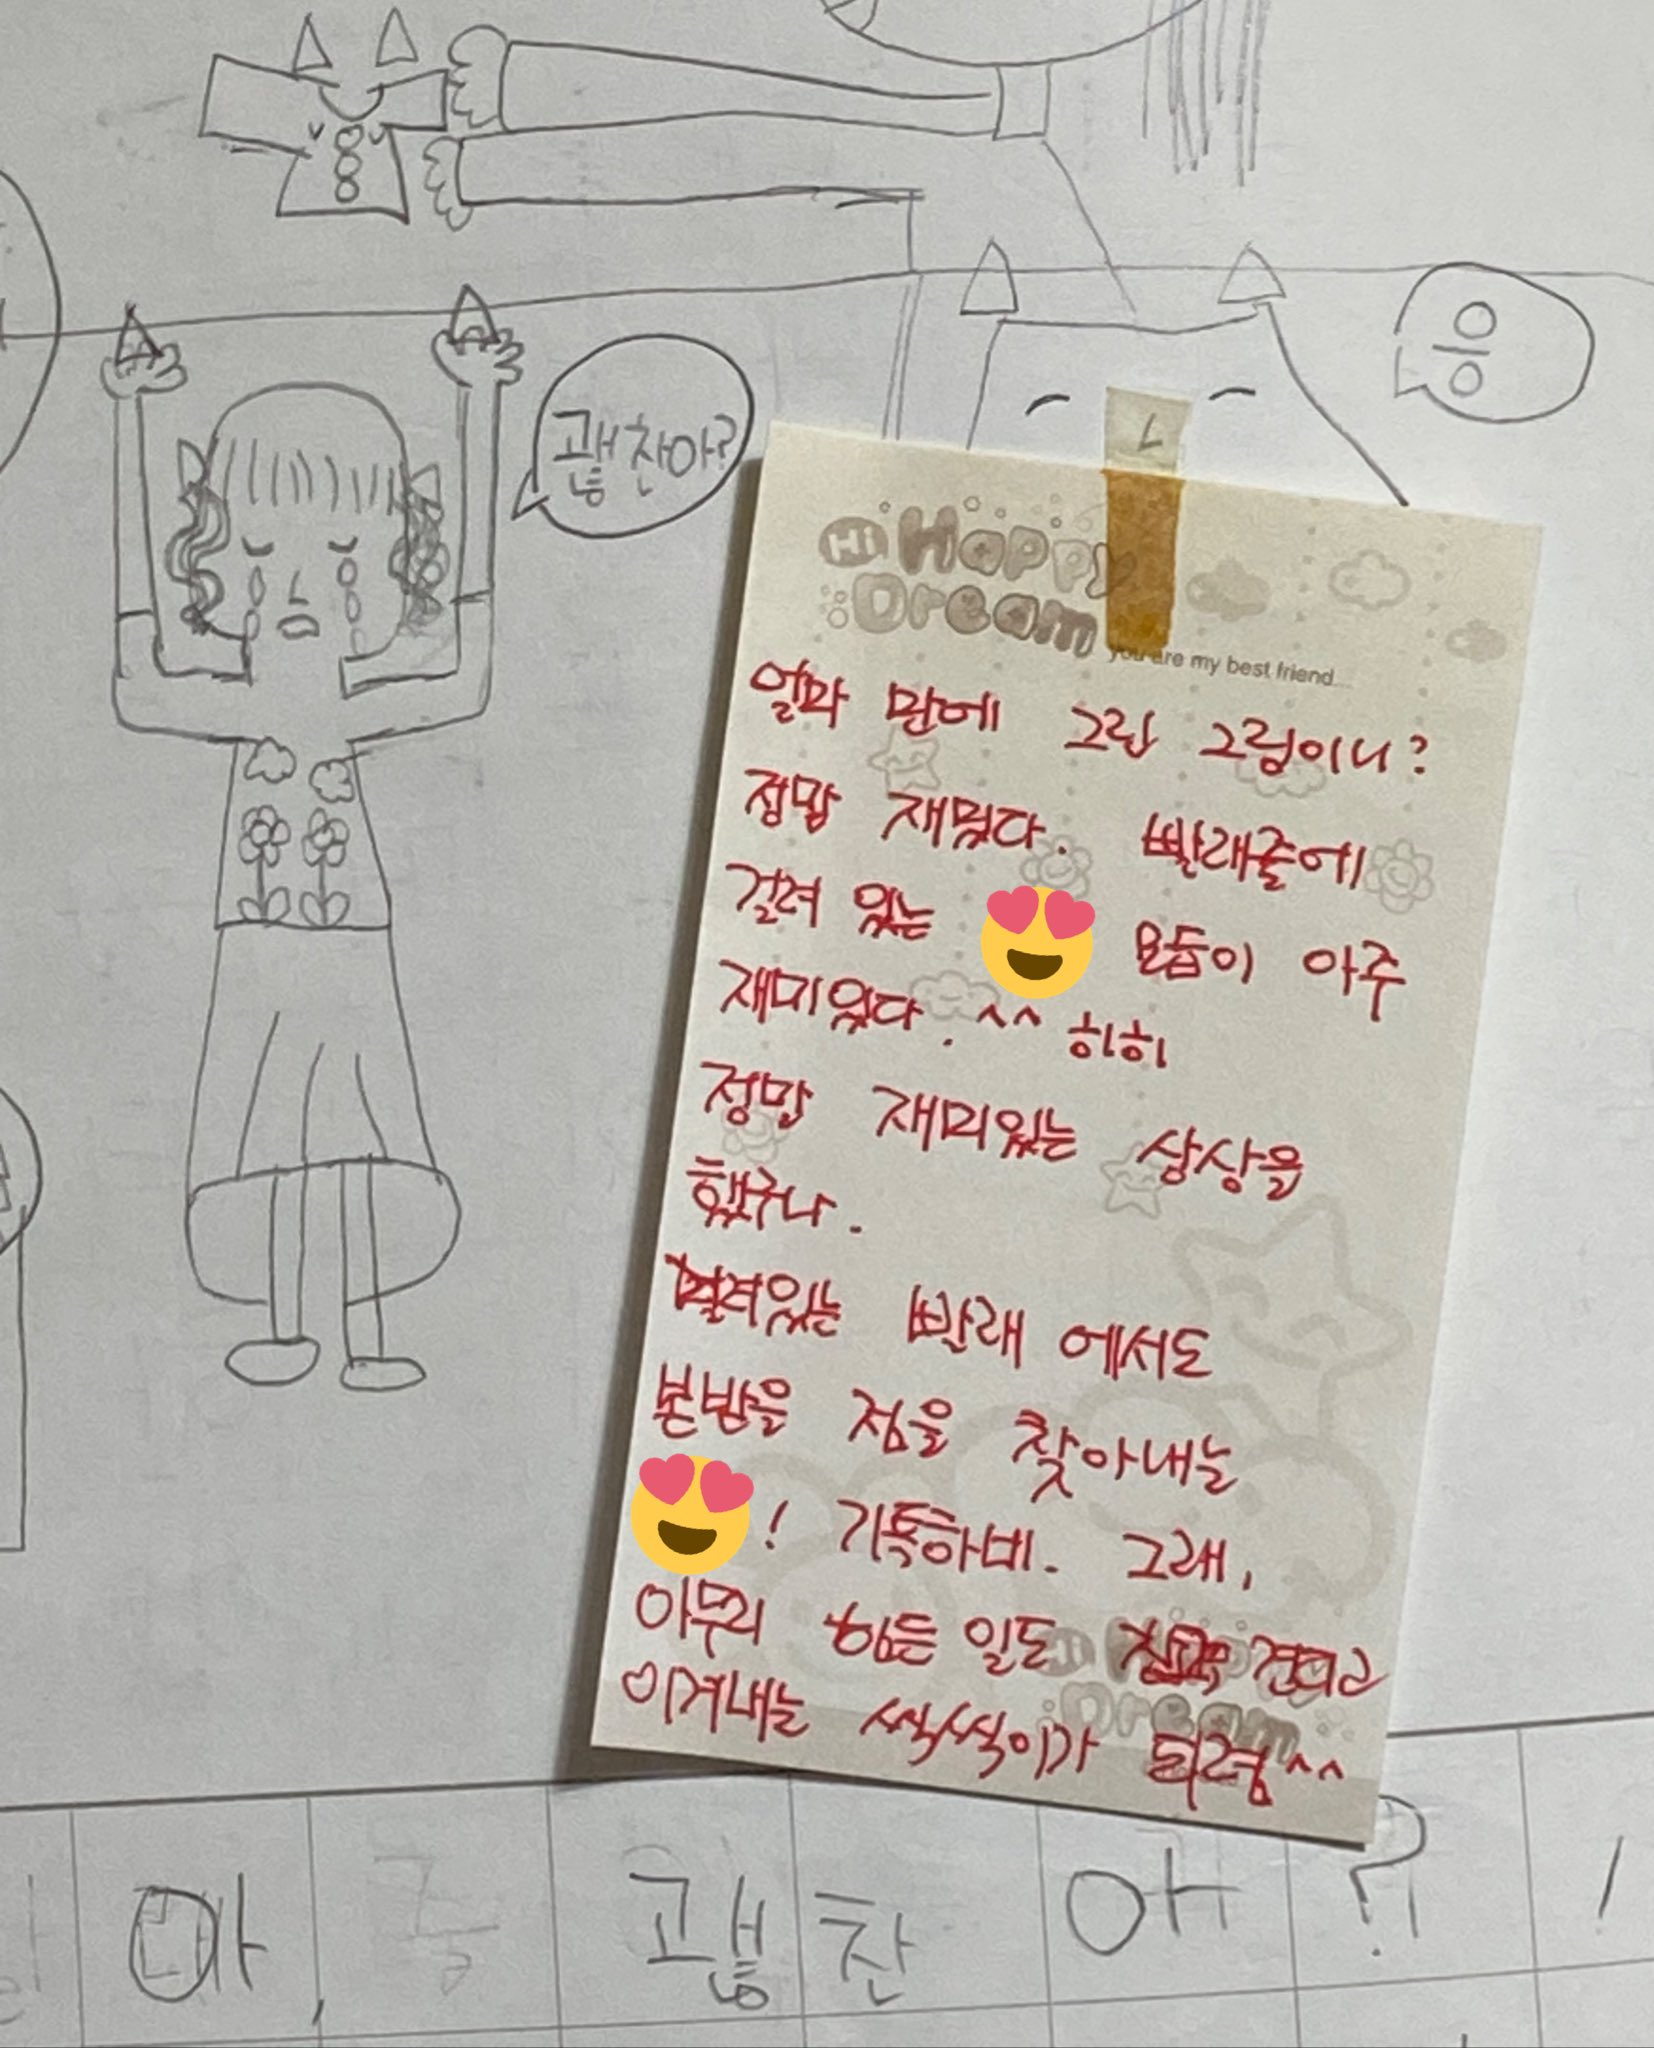 괞찬아?
응
Hi Happy
Dream
you are my best friend...
얼마 만에 그린 그림이니?
정말 재밌다. 빨래줄에
걸려 있는 😍 모습이 아주
재미있다. ^^ 히히
정말 재미있는 상상을
했구나.
걸려있는 빨래 에서도
본받을 점을 찾아내는
😍! 기특하네. 그래,
아무리 힘든 일도 견디고
이겨내는 씩씩이가 되렴^^
Hi
Dream
아, 괞찬아?